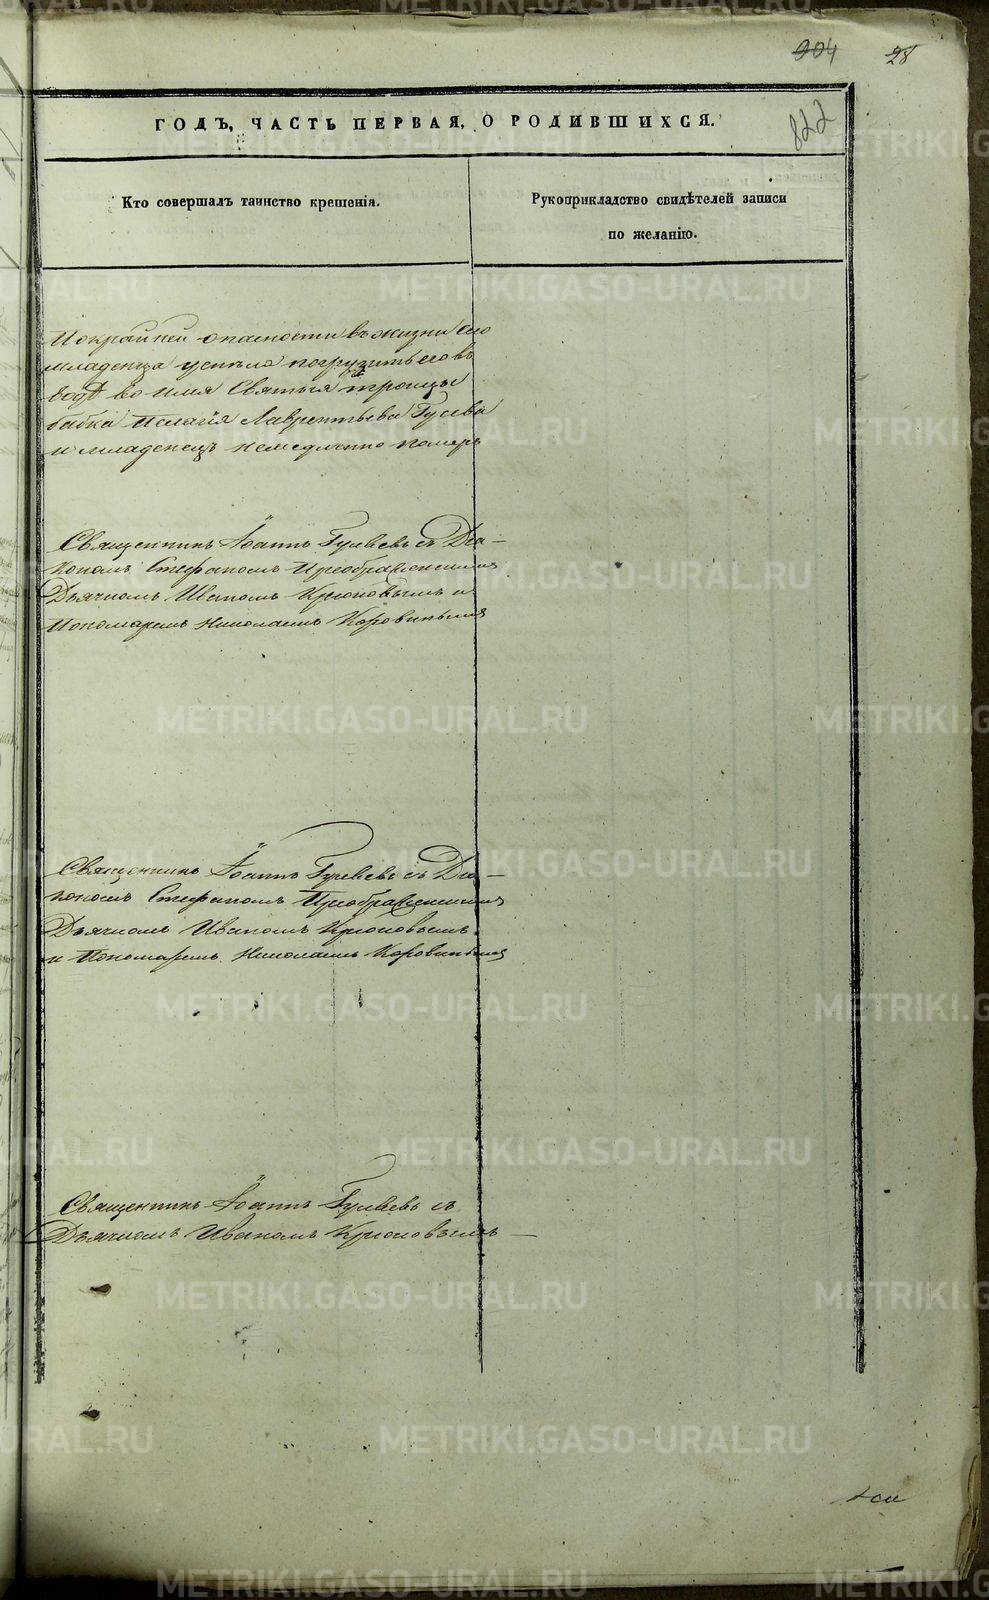 904 28
822
ГОДЪ, ЧАСТЬ ПЕРВАЯ, О РОДИВШИХСЯ.
Кто совершалъ таинство крещенія.
Рукоприкладство свидѣтелей записи
по желанію.
По крайней опасности въ жизни сего
младенца успѣла погрузить его въ
водѣ во имя Святыя троицы
бабка Пелагія Лаврентьева Гусева
и младенецъ немедленно померъ
Священникъ Іоаннъ Гуляевъ съ Діа-
кономъ Стефаномъ Преображенскимъ
Дьячкомъ Иваномъ Крюковымъ и
Пономаремъ Николаемъ Коровинымъ
Священникъ Іоаннъ Гуляевъ съ Діа-
кономъ Стефаномъ Преображенскимъ
Дьячкомъ Иваномъ Крюковымъ
и Пономаремъ Николаемъ Коровинымъ
Священникъ Іоаннъ Гуляевъ съ
Дьячкомъ Иваномъ Крюковымъ —
METRIKI.GASO-URAL.RU